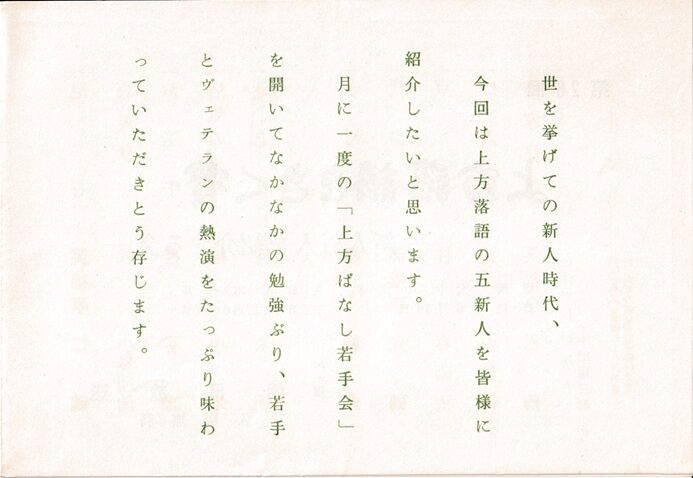 世を挙げての新人時代、
今回は上方落語の五新人を皆様に
紹介したいと思います。
月に一度の「上方ばなし若手会」
を開いてなかなかの勉強ぶり、若手
とヴェテランの熱演をたっぷり味わ
っていただきとう存じます。